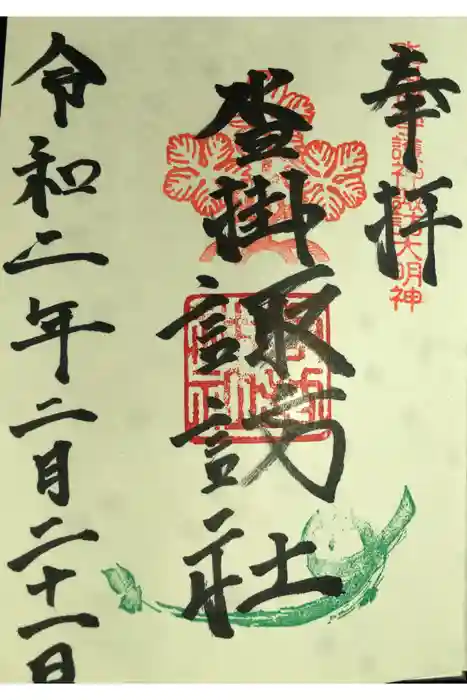 奉拝
大明神
沓掛
諏訪社
令和二年二月二十一日